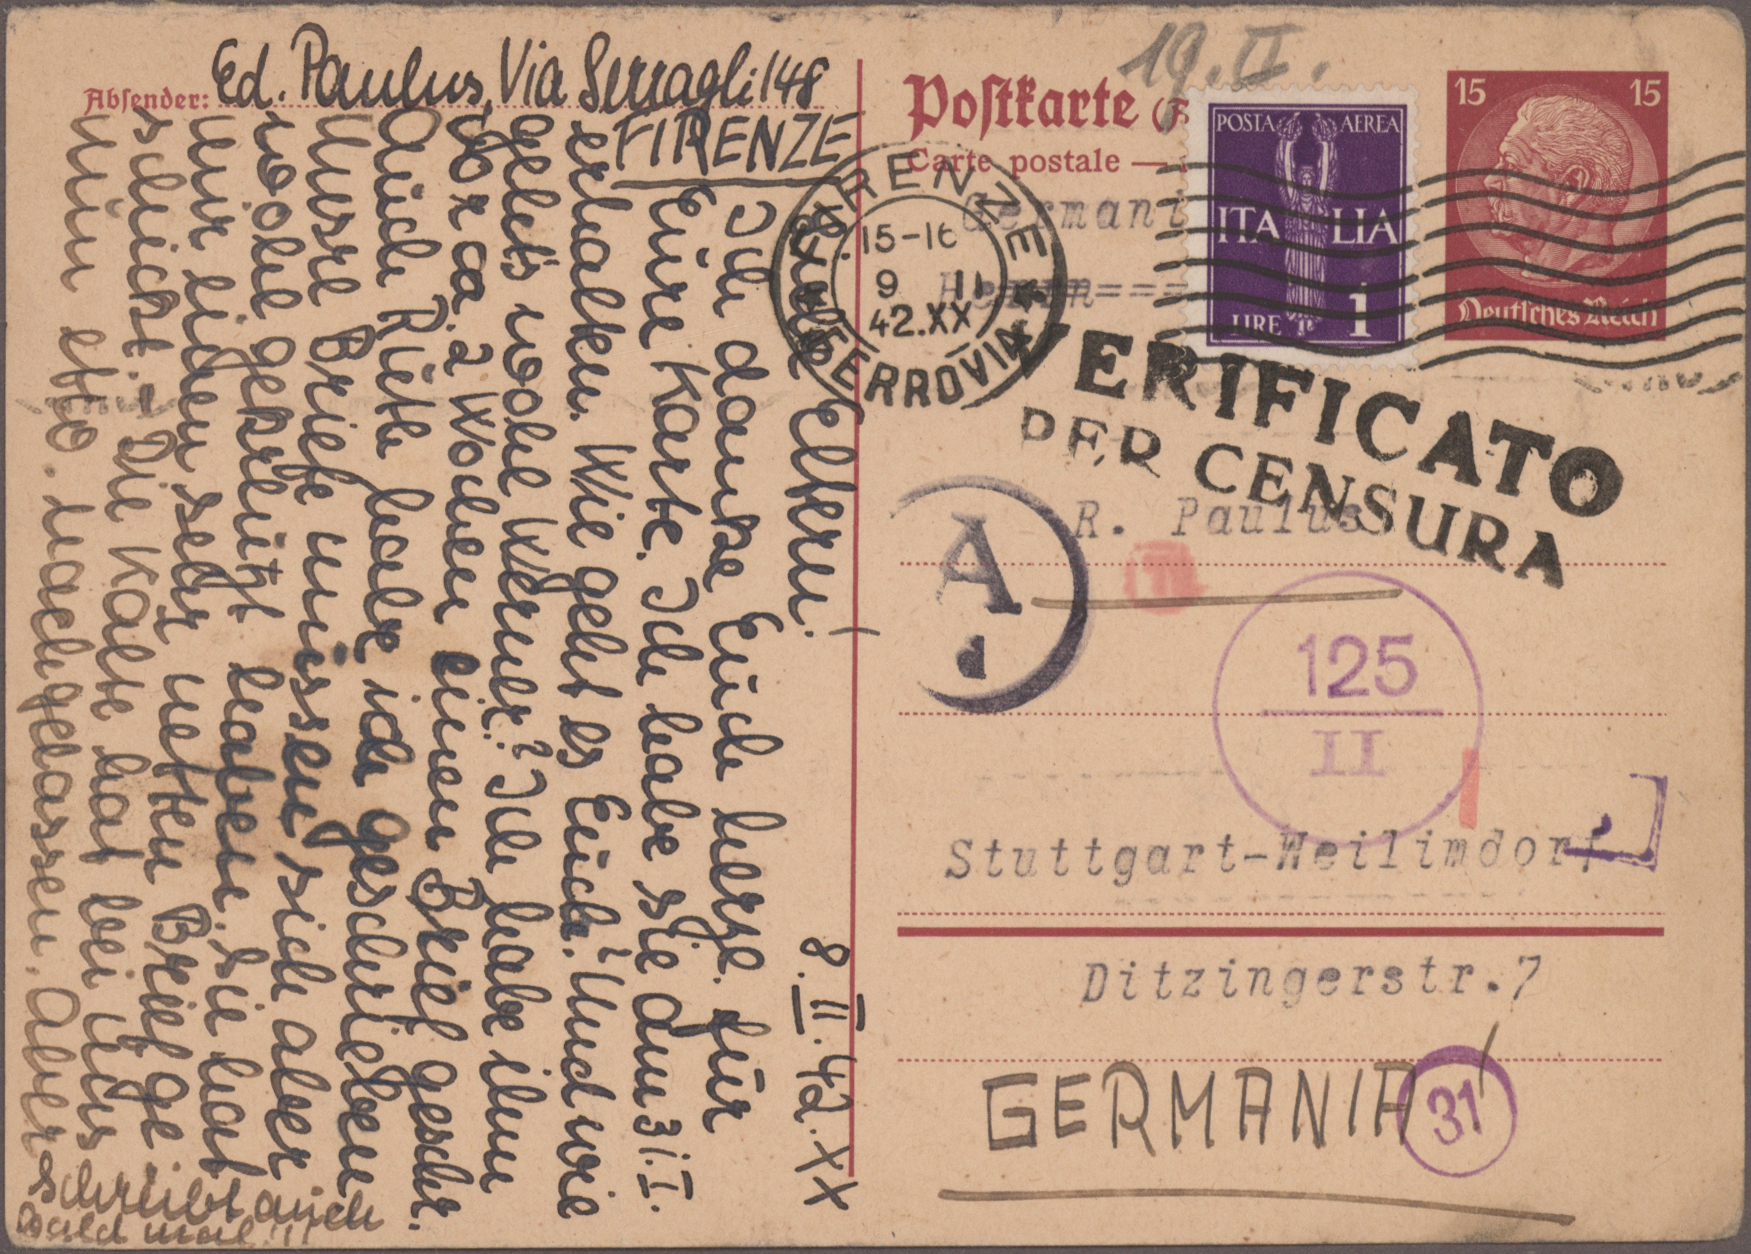 19.II.
Absender: Ed. Paulus, Via Serragli 148
FIRENZE
8.II.42.XX
Liebe Eltern!
Ich danke Euch herzl. für
Eure Karte. Ich habe sie am 31.I.
erhalten. Wie geht es Euch? Und wie
geht's wohl Werner? Ich habe ihm
vor ca. 2 Wochen einen Brief geschr.
Auch Ruth habe ich geschrieben
Unsre Briefe müssen sich aber
wohl gekreuzt haben. Sie hat
mir einen sehr netten Brief ge
schickt. – Die Kälte hat bei uns
nun etw. nachgelassen. Aber
schreibt auch
bald mal!!
Postkarte
Carte postale —
Germani
Herrn===
R. Paulus
Stuttgart-Weilimdorf
Ditzingerstr.7
GERMANIA
POSTA AEREA
ITALIA
LIRE 1
15 15
Deutsches Reich
FIRENZE
15-16
9 II
42.XX
FERROVIA
VERIFICATO
PER CENSURA
A
d
125
II
31